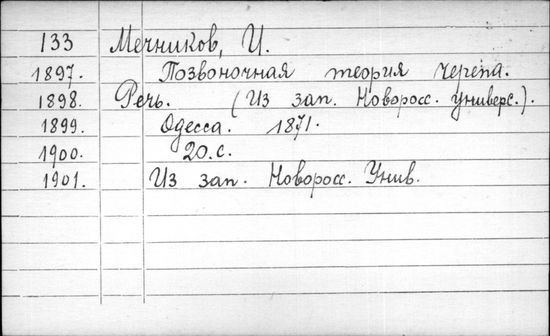 133 Мечников, И.
1897. Позвоночная теория черепа.
1898. Речь. (Из зап. Новоросс. универс.).
1899. Одесса. 1871.
1900. 20.с.
1901. Из зап. Новоросс. Унив.